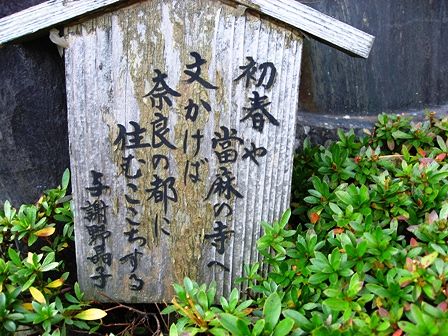 初春や
當麻の寺へ
文かけば
奈良の都に
住むここちする
与謝野晶子